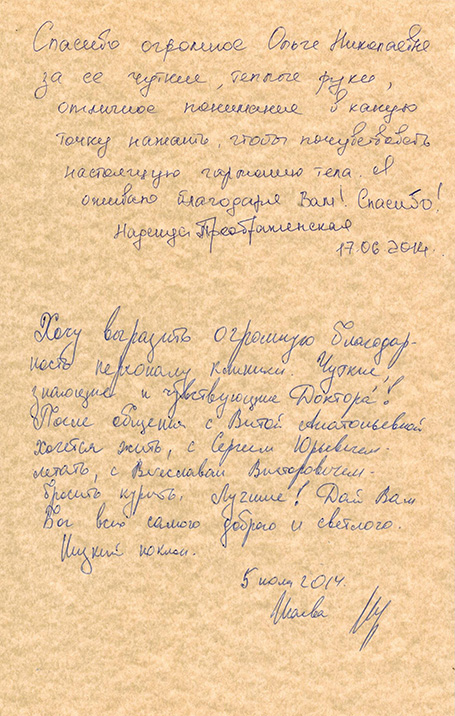 Спасибо огромное Ольге Николаевне
за её чуткие, теплые руки,
отличное понимание в какую
точку нажать, чтобы почувствовать
настоящую гармонию тела. Я
оживаю благодаря Вам! Спасибо!
Надежда Преображенская
17.06.2014.
Хочу выразить огромную благодар-
ность персоналу клиники. Чуткие,
знающие и чувствующие Доктора!!
После общения с Витой Анатольевной
хочется жить, с Сергеем Юрьевичем-
летать, с Вячеславом Викторовичем-
бросить курить. Лучшие! Дай Вам
Бог всего самого доброго и светлого.
Низкий поклон.
5 июля 2014.